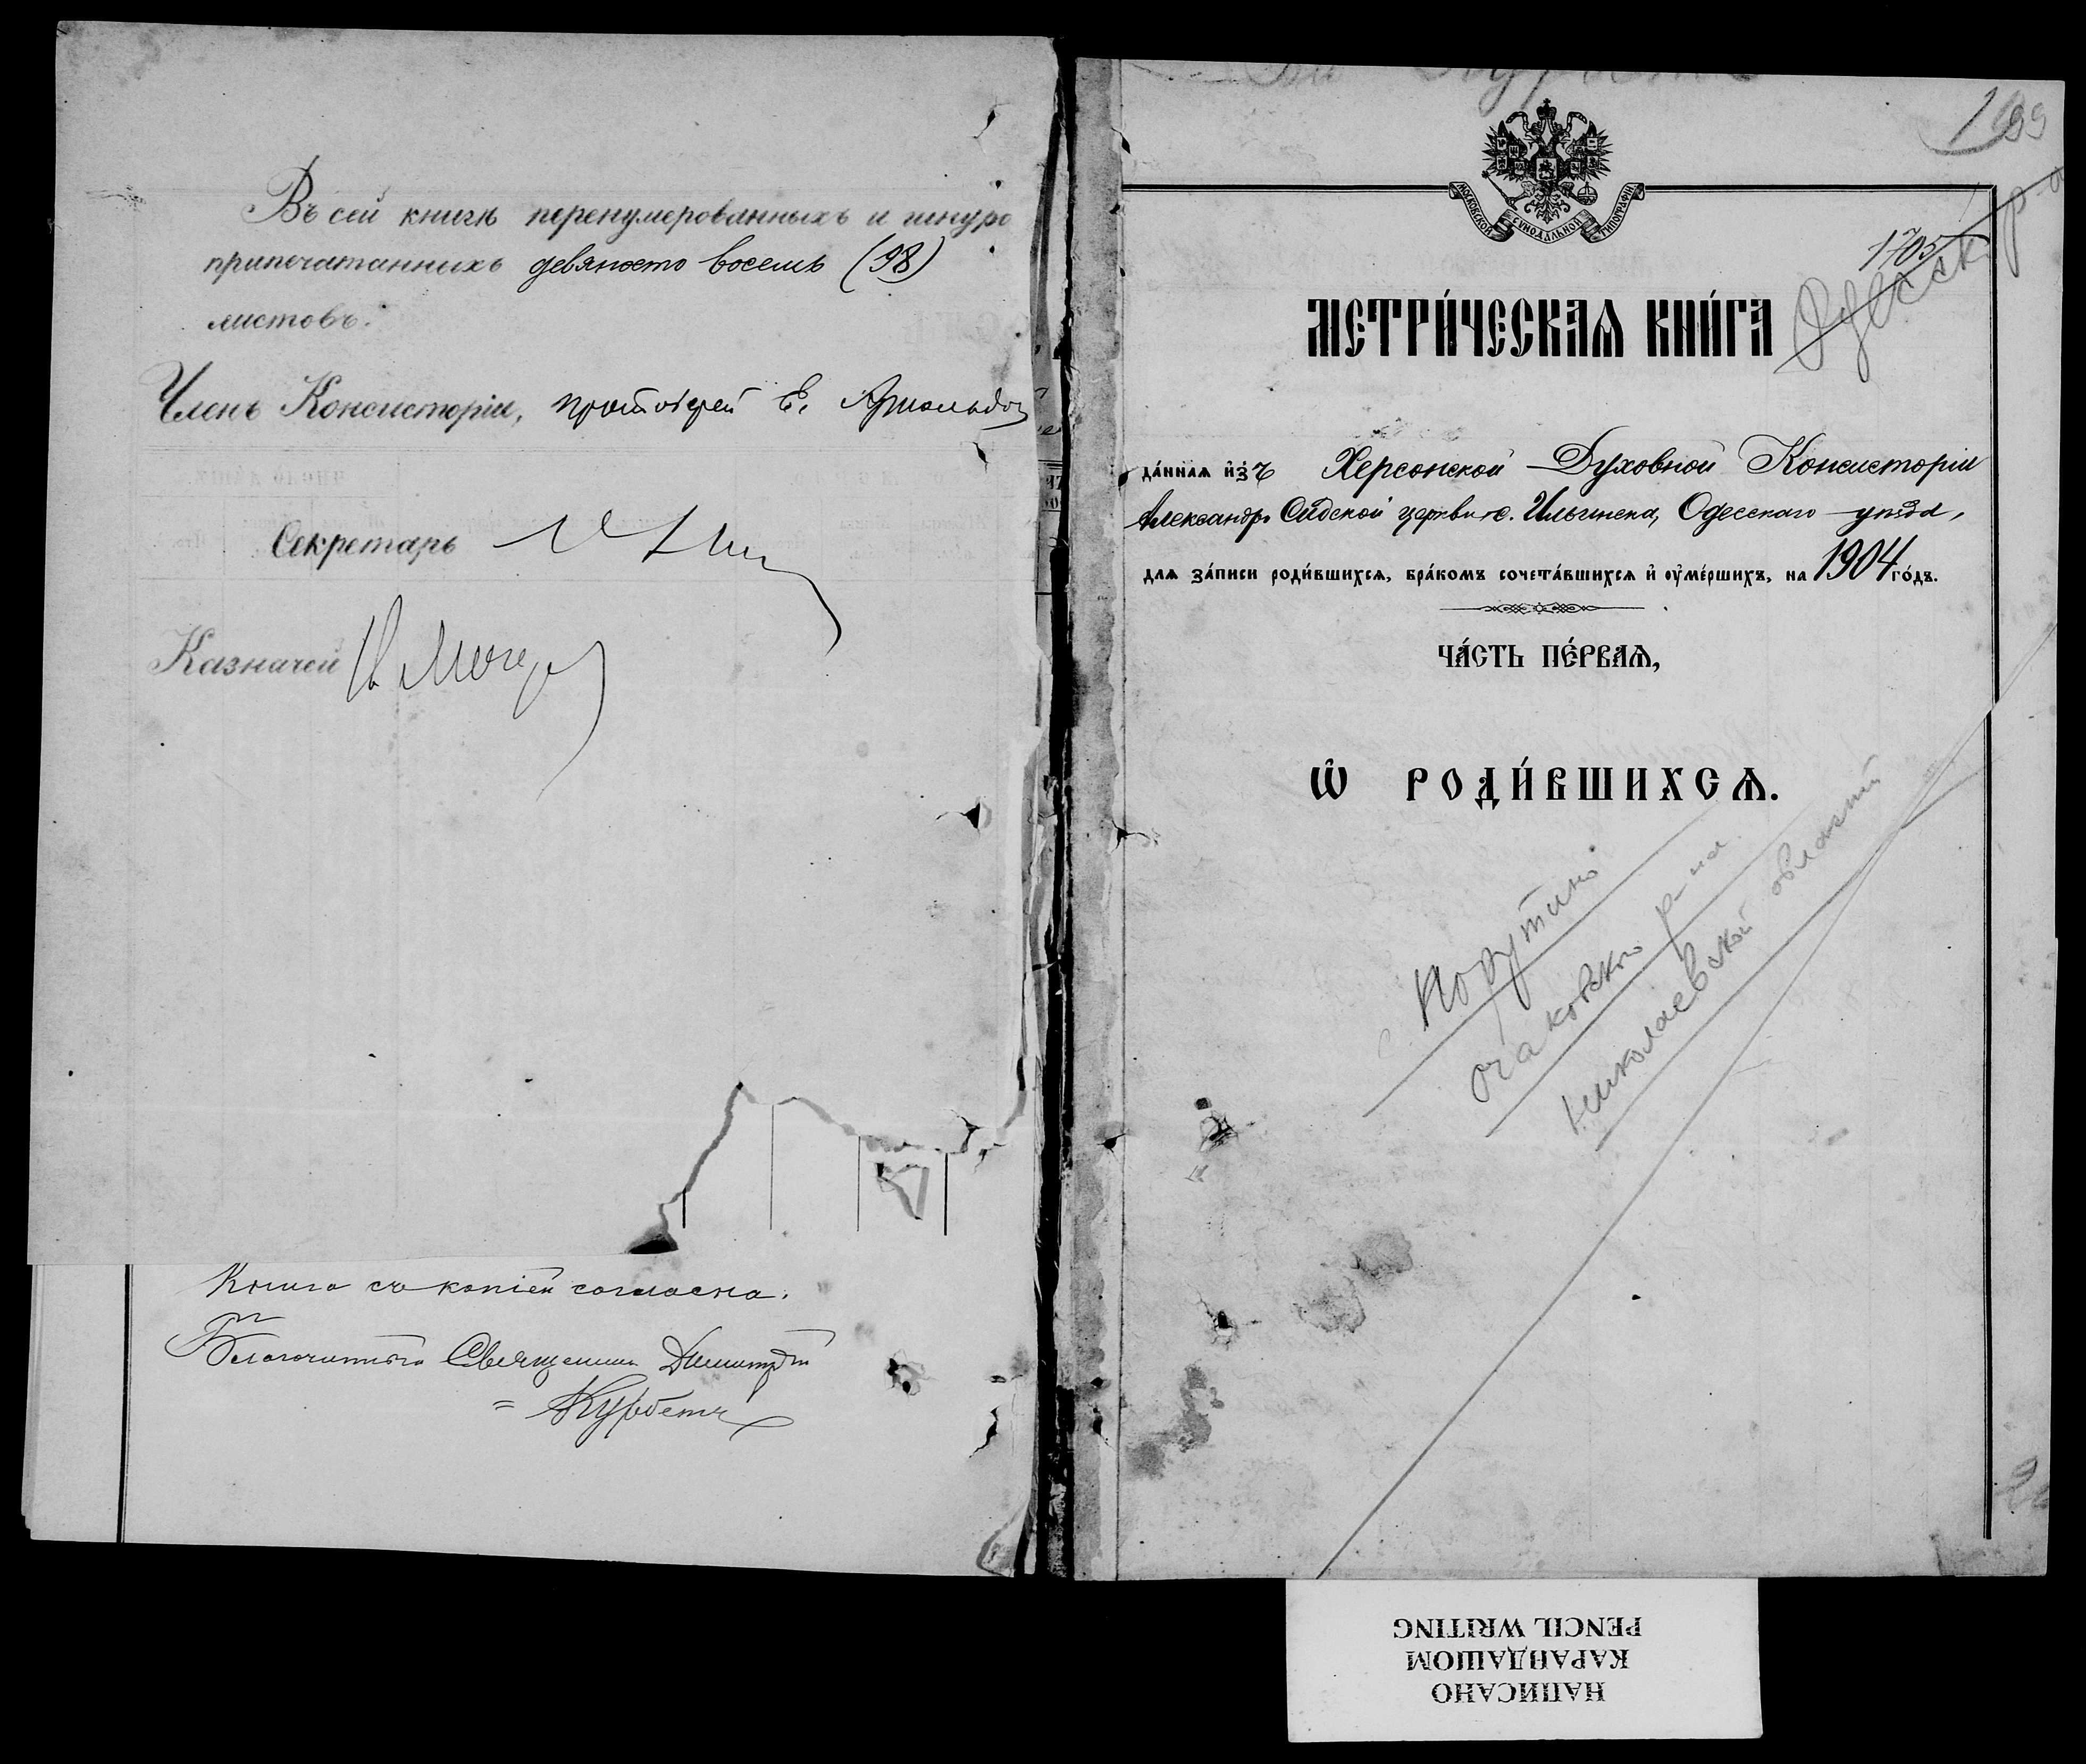 Въ сей книгѣ перенумерованныхъ и шнуро
припечатанныхъ девяносто восемь (98)
листовъ.
Членъ Консисторіи, протоіерей Е.
Секретарь
Казначей
Книга съ копіей согласна.
Благочинный Священникъ Димитрій
= Курбетъ
199
МОСКОВСКОЙ СѴНОДАЛЬНОЙ ТИПОГРАФІИ
1705
Одесск. р-
МЕТРИ́ЧЕСКАѦ КНИ́ГА
да́ннаѧ и҆зъ Херсонской Духовной Консисторіи
Александро церкви с. Ильинска, Одесскаго уѣзда,
для за́писи роди́вшихсѧ, бра́комъ сочета́вшихсѧ и҆ ᲂу҆ме́ршихъ, на 1904 го́дъ.
ЧА́СТЬ ПЕ́РВАѦ,
Ѡ҆ РОДИ́ВШИХСѦ.
с. Парутино
Очаковского р-на
Николаевской области
НАПИСАНО
КАРАНДАШОМ
PENCIL WRITING